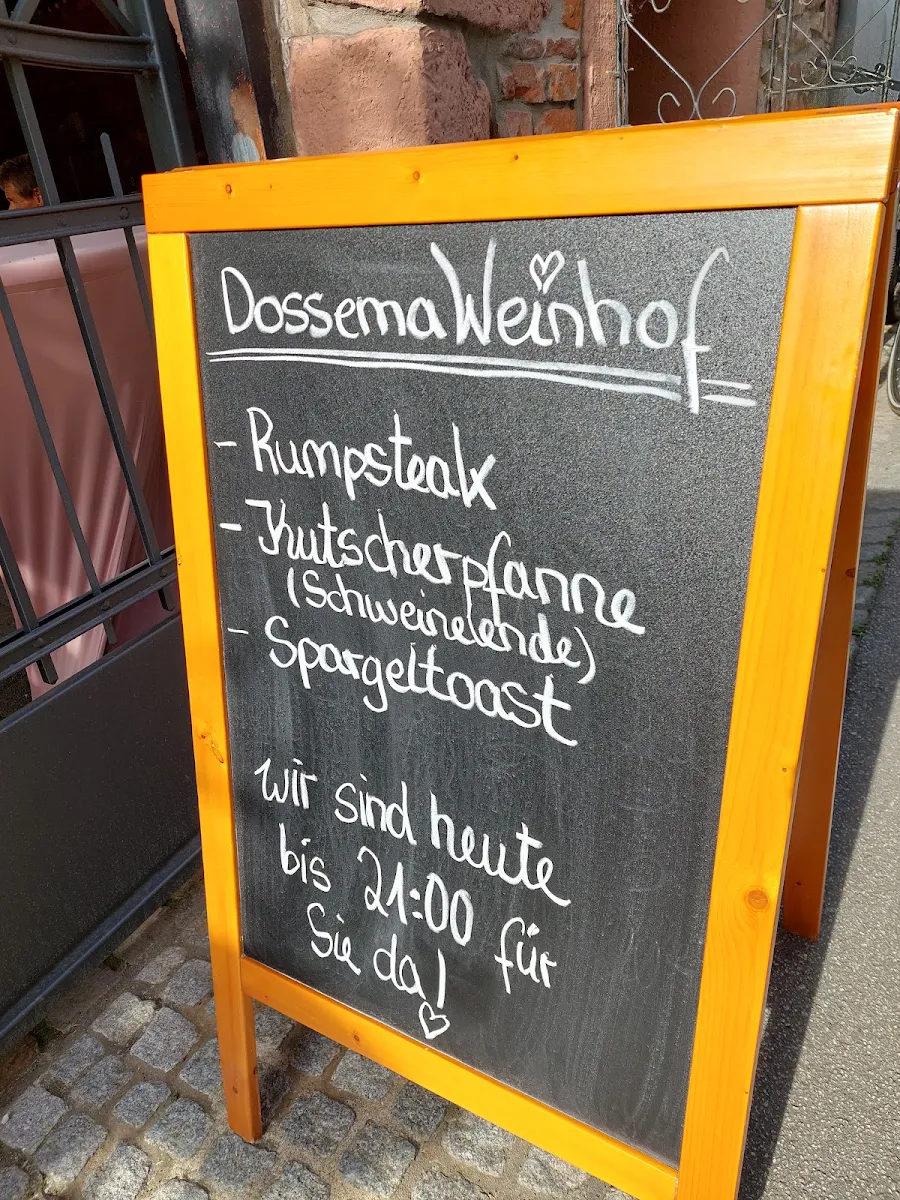 Dossema Weinhof
- Rumpsteak
- Kutscherpfanne
(Schweinelende)
- Spargeltoast
wir sind heute
bis 21:00 für
Sie da!